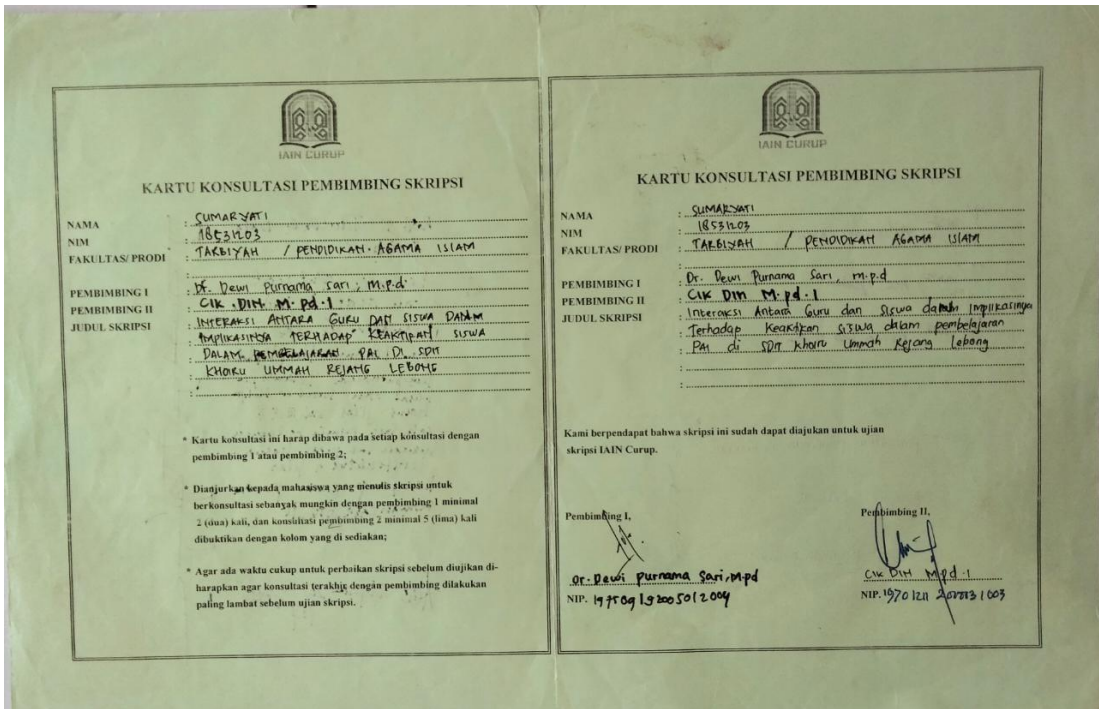 IAIN CURUP
KARTU KONSULTASI PEMBIMBING SKRIPSI
NAMA : SUMARYATI
NIM : 18531203
FAKULTAS/ PRODI : TARBIYAH / PENDIDIKAN AGAMA ISLAM
PEMBIMBING I : Dr. Dewi Purnama Sari, M.pd.
PEMBIMBING II : CIK DIN M.pd.I
JUDUL SKRIPSI : INTERAKSI ANTARA GURU DAN SISWA DALAM
IMPLIKASINYA TERHADAP KEAKTIFAN SISWA
DALAM PEMBELAJARAN PAI DI SDIT
KHOIRU UMMAH REJANG LEBONG
* Kartu konsultasi ini harap dibawa pada setiap konsultasi dengan
pembimbing 1 atau pembimbing 2;
* Dianjurkan kepada mahasiswa yang menulis skripsi untuk
berkonsultasi sebanyak mungkin dengan pembimbing 1 minimal
2 (dua) kali, dan konsultasi pembimbing 2 minimal 5 (lima) kali
dibuktikan dengan kolom yang di sediakan;
* Agar ada waktu cukup untuk perbaikan skripsi sebelum diujikan di-
harapkan agar konsultasi terakhir dengan pembimbing dilakukan
paling lambat sebelum ujian skripsi.
IAIN CURUP
KARTU KONSULTASI PEMBIMBING SKRIPSI
NAMA : SUMARYATI
NIM : 18531203
FAKULTAS/ PRODI : TARBIYAH / PENDIDIKAN AGAMA ISLAM
PEMBIMBING I : Dr. Dewi Purnama Sari, m.p.d
PEMBIMBING II : CIK DIN M.pd.I
JUDUL SKRIPSI : Interaksi Antara Guru dan Siswa dalam Implikasinya
Terhadap Keaktifan siswa dalam pembelajaran
PAI di SDIT khoiru Ummah Rejang lebong
Kami berpendapat bahwa skripsi ini sudah dapat diajukan untuk ujian
skripsi IAIN Curup.
Pembimbing I, Pembimbing II,
Dr. Dewi purnama Sari, M.pd CIK DIN M.pd.I
NIP. NIP.